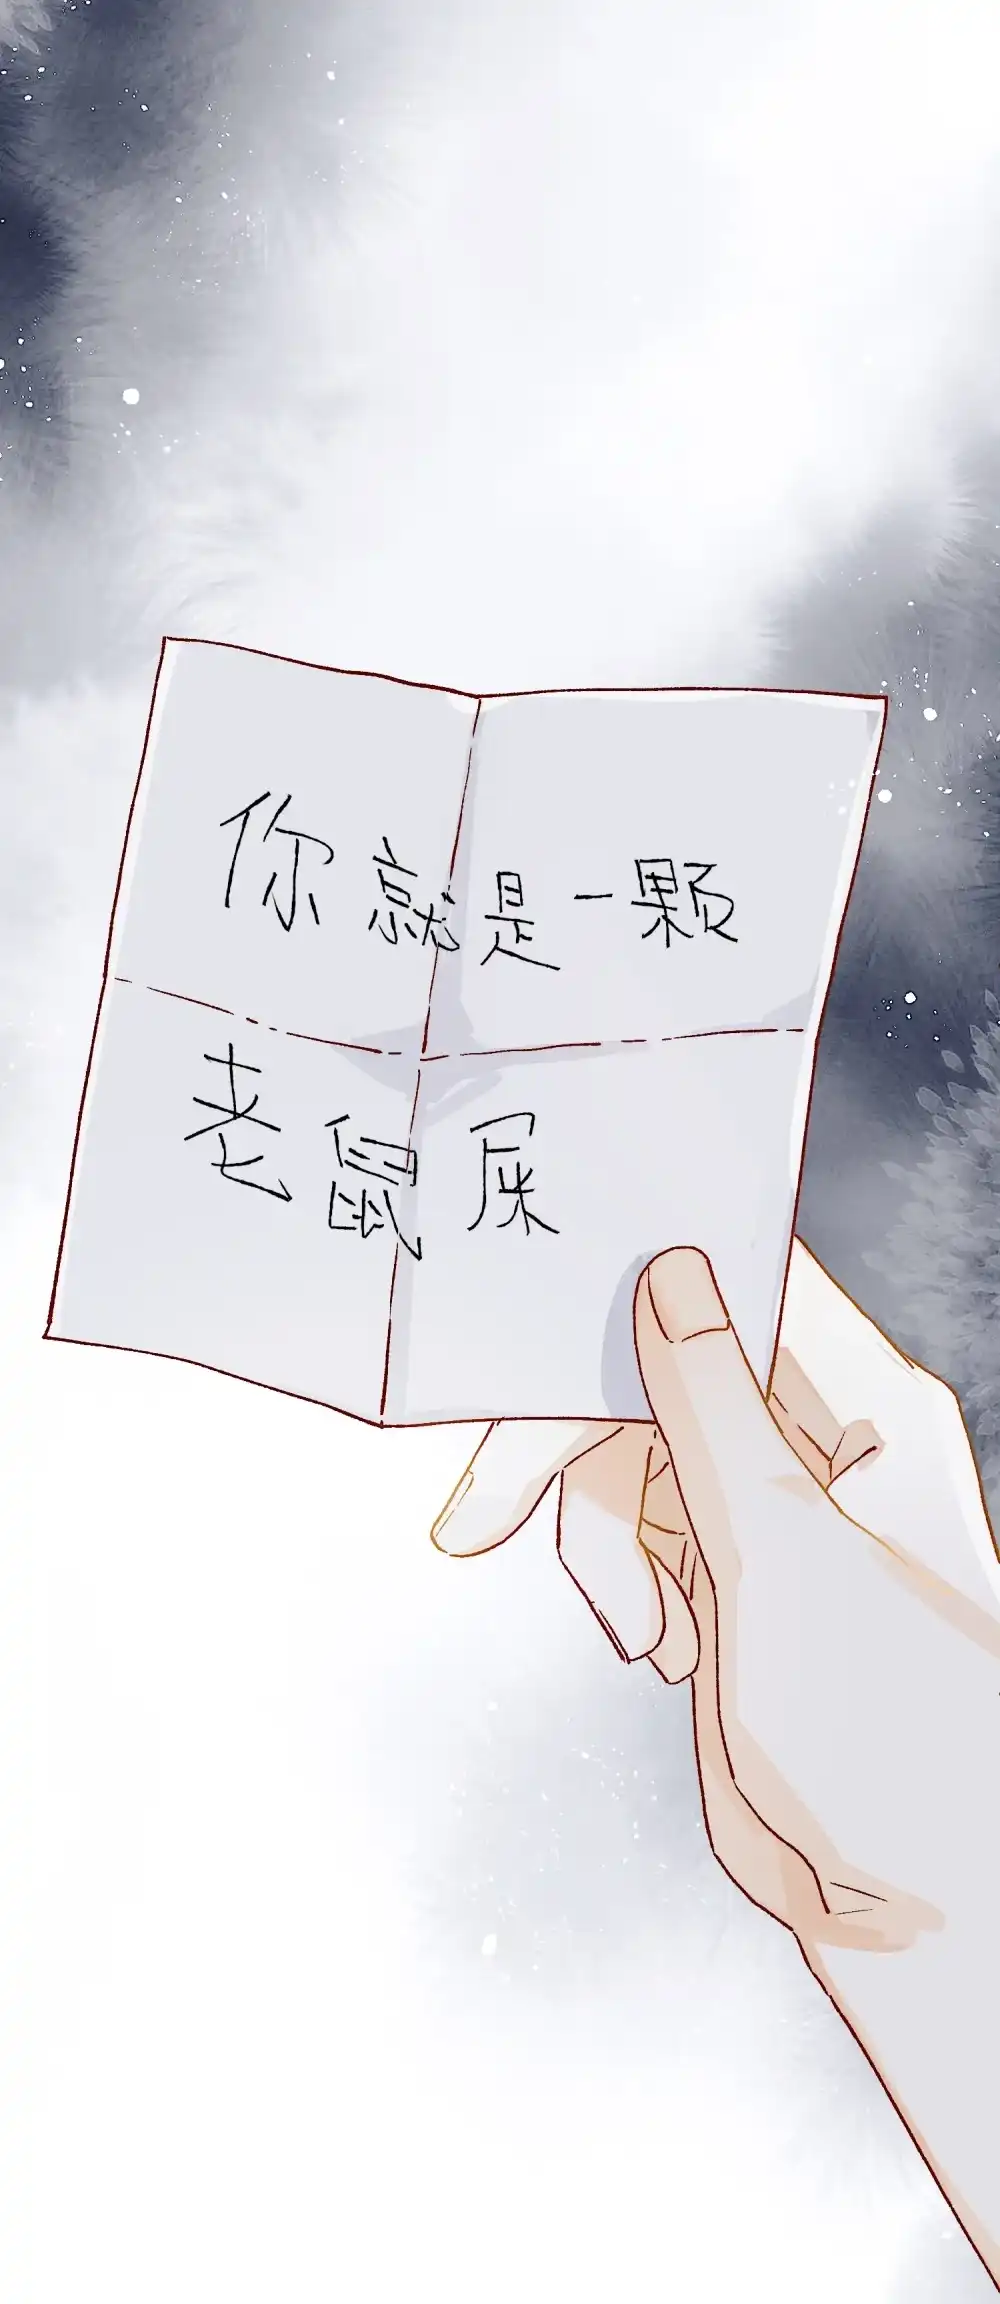 你就是一颗
老鼠屎